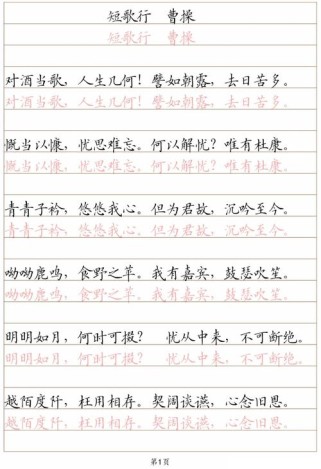 短歌行　曹操
短歌行　曹操
对酒当歌，人生几何！譬如朝露，去日苦多。
对酒当歌，人生几何！譬如朝露，去日苦多。
慨当以慷，忧思难忘。何以解忧？唯有杜康。
慨当以慷，忧思难忘。何以解忧？唯有杜康。
青青子衿，悠悠我心。但为君故，沉吟至今。
青青子衿，悠悠我心。但为君故，沉吟至今。
呦呦鹿鸣，食野之苹。我有嘉宾，鼓瑟吹笙。
呦呦鹿鸣，食野之苹。我有嘉宾，鼓瑟吹笙。
明明如月，何时可掇？　忧从中来，不可断绝。
明明如月，何时可掇？　忧从中来，不可断绝。
越陌度阡，枉用相存。契阔谈讌，心念旧恩。
越陌度阡，枉用相存。契阔谈讌，心念旧恩。
第1页